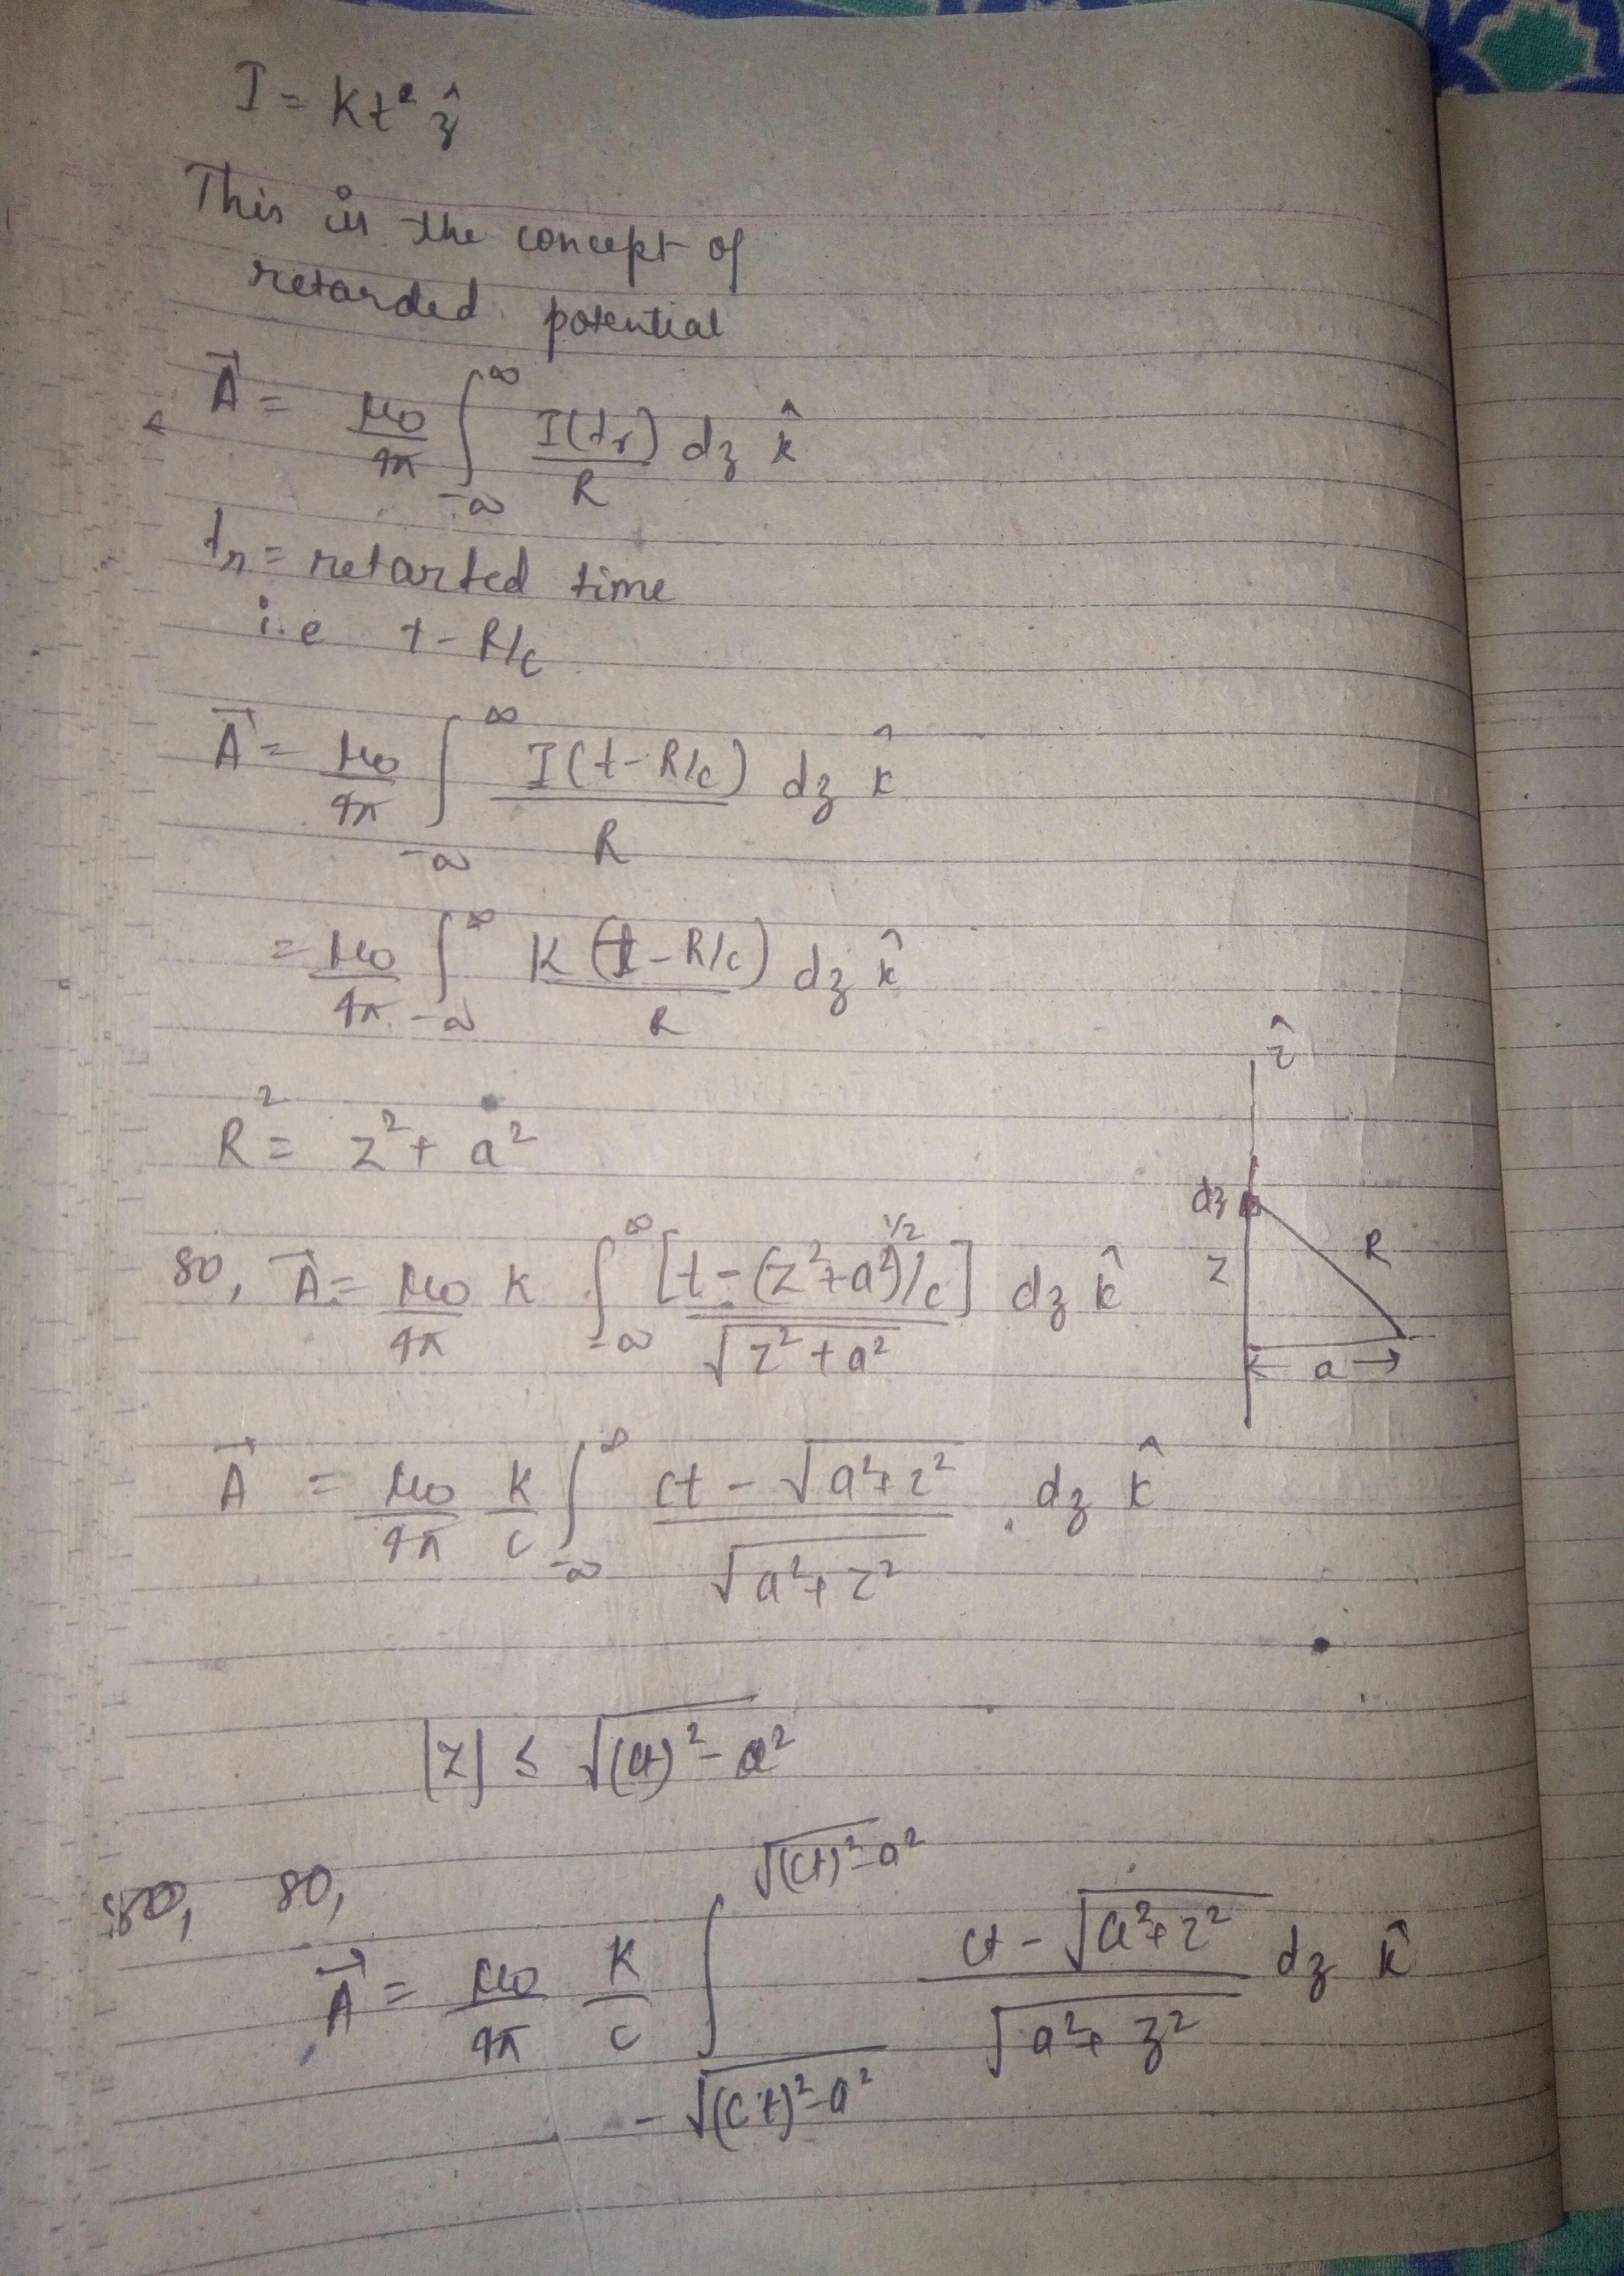 I = Kt² ẑ
This is the concept of
retarded potential
A⃗ = μ₀/4π ∫_{-∞}^{∞} I(tᵣ)/R dz k̂
tᵣ = retarted time
i.e t - R/c
A⃗ = μ₀/4π ∫_{-∞}^{∞} I(t - R/c)/R dz k̂
= μ₀/4π ∫_{-∞}^{∞} K (t - R/c)/R dz k̂
ẑ
R² = z² + a²
dz
R
z
a
so, A⃗ = μ₀/4π K ∫_{-∞}^{∞} [t - (z² + a²)^{1/2}/c]/√(z² + a²) dz k̂
A⃗ = μ₀/4π K/c ∫_{-∞}^{∞} (ct - √(a² + z²))/√(a² + z²) . dz k̂
|z| ≤ √((ct)² - a²)
so,
A⃗ = μ₀/4π K/c ∫_{-√((ct)² - a²)}^{√((ct)² - a²)} (ct - √(a² + z²))/√(a² + z²) dz k̂